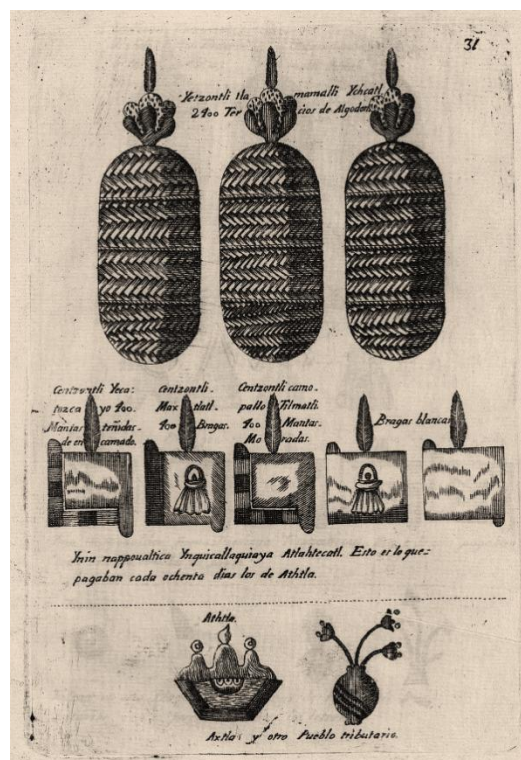 31
Yetzontli tlamamalli Ychcatl
2400 Tercios de Algodon.
Centzontli Yeca-
tozca yo 400.
Mantas teñidas.
de encarnado.
Centzontli.
Maxtlatl.
400 Bragas.
Centzontli camo-
pallo Tilmatli.
400 Mantas.
Moradas.
Bragas blancas
Ynin nappoualtica Ynquicallaquiaya Atlahtecatl. Esto es lo que=
pagaban cada ochenta dias los de Athtla.
Athtla.
Axtla: y otro Pueblo tributario.